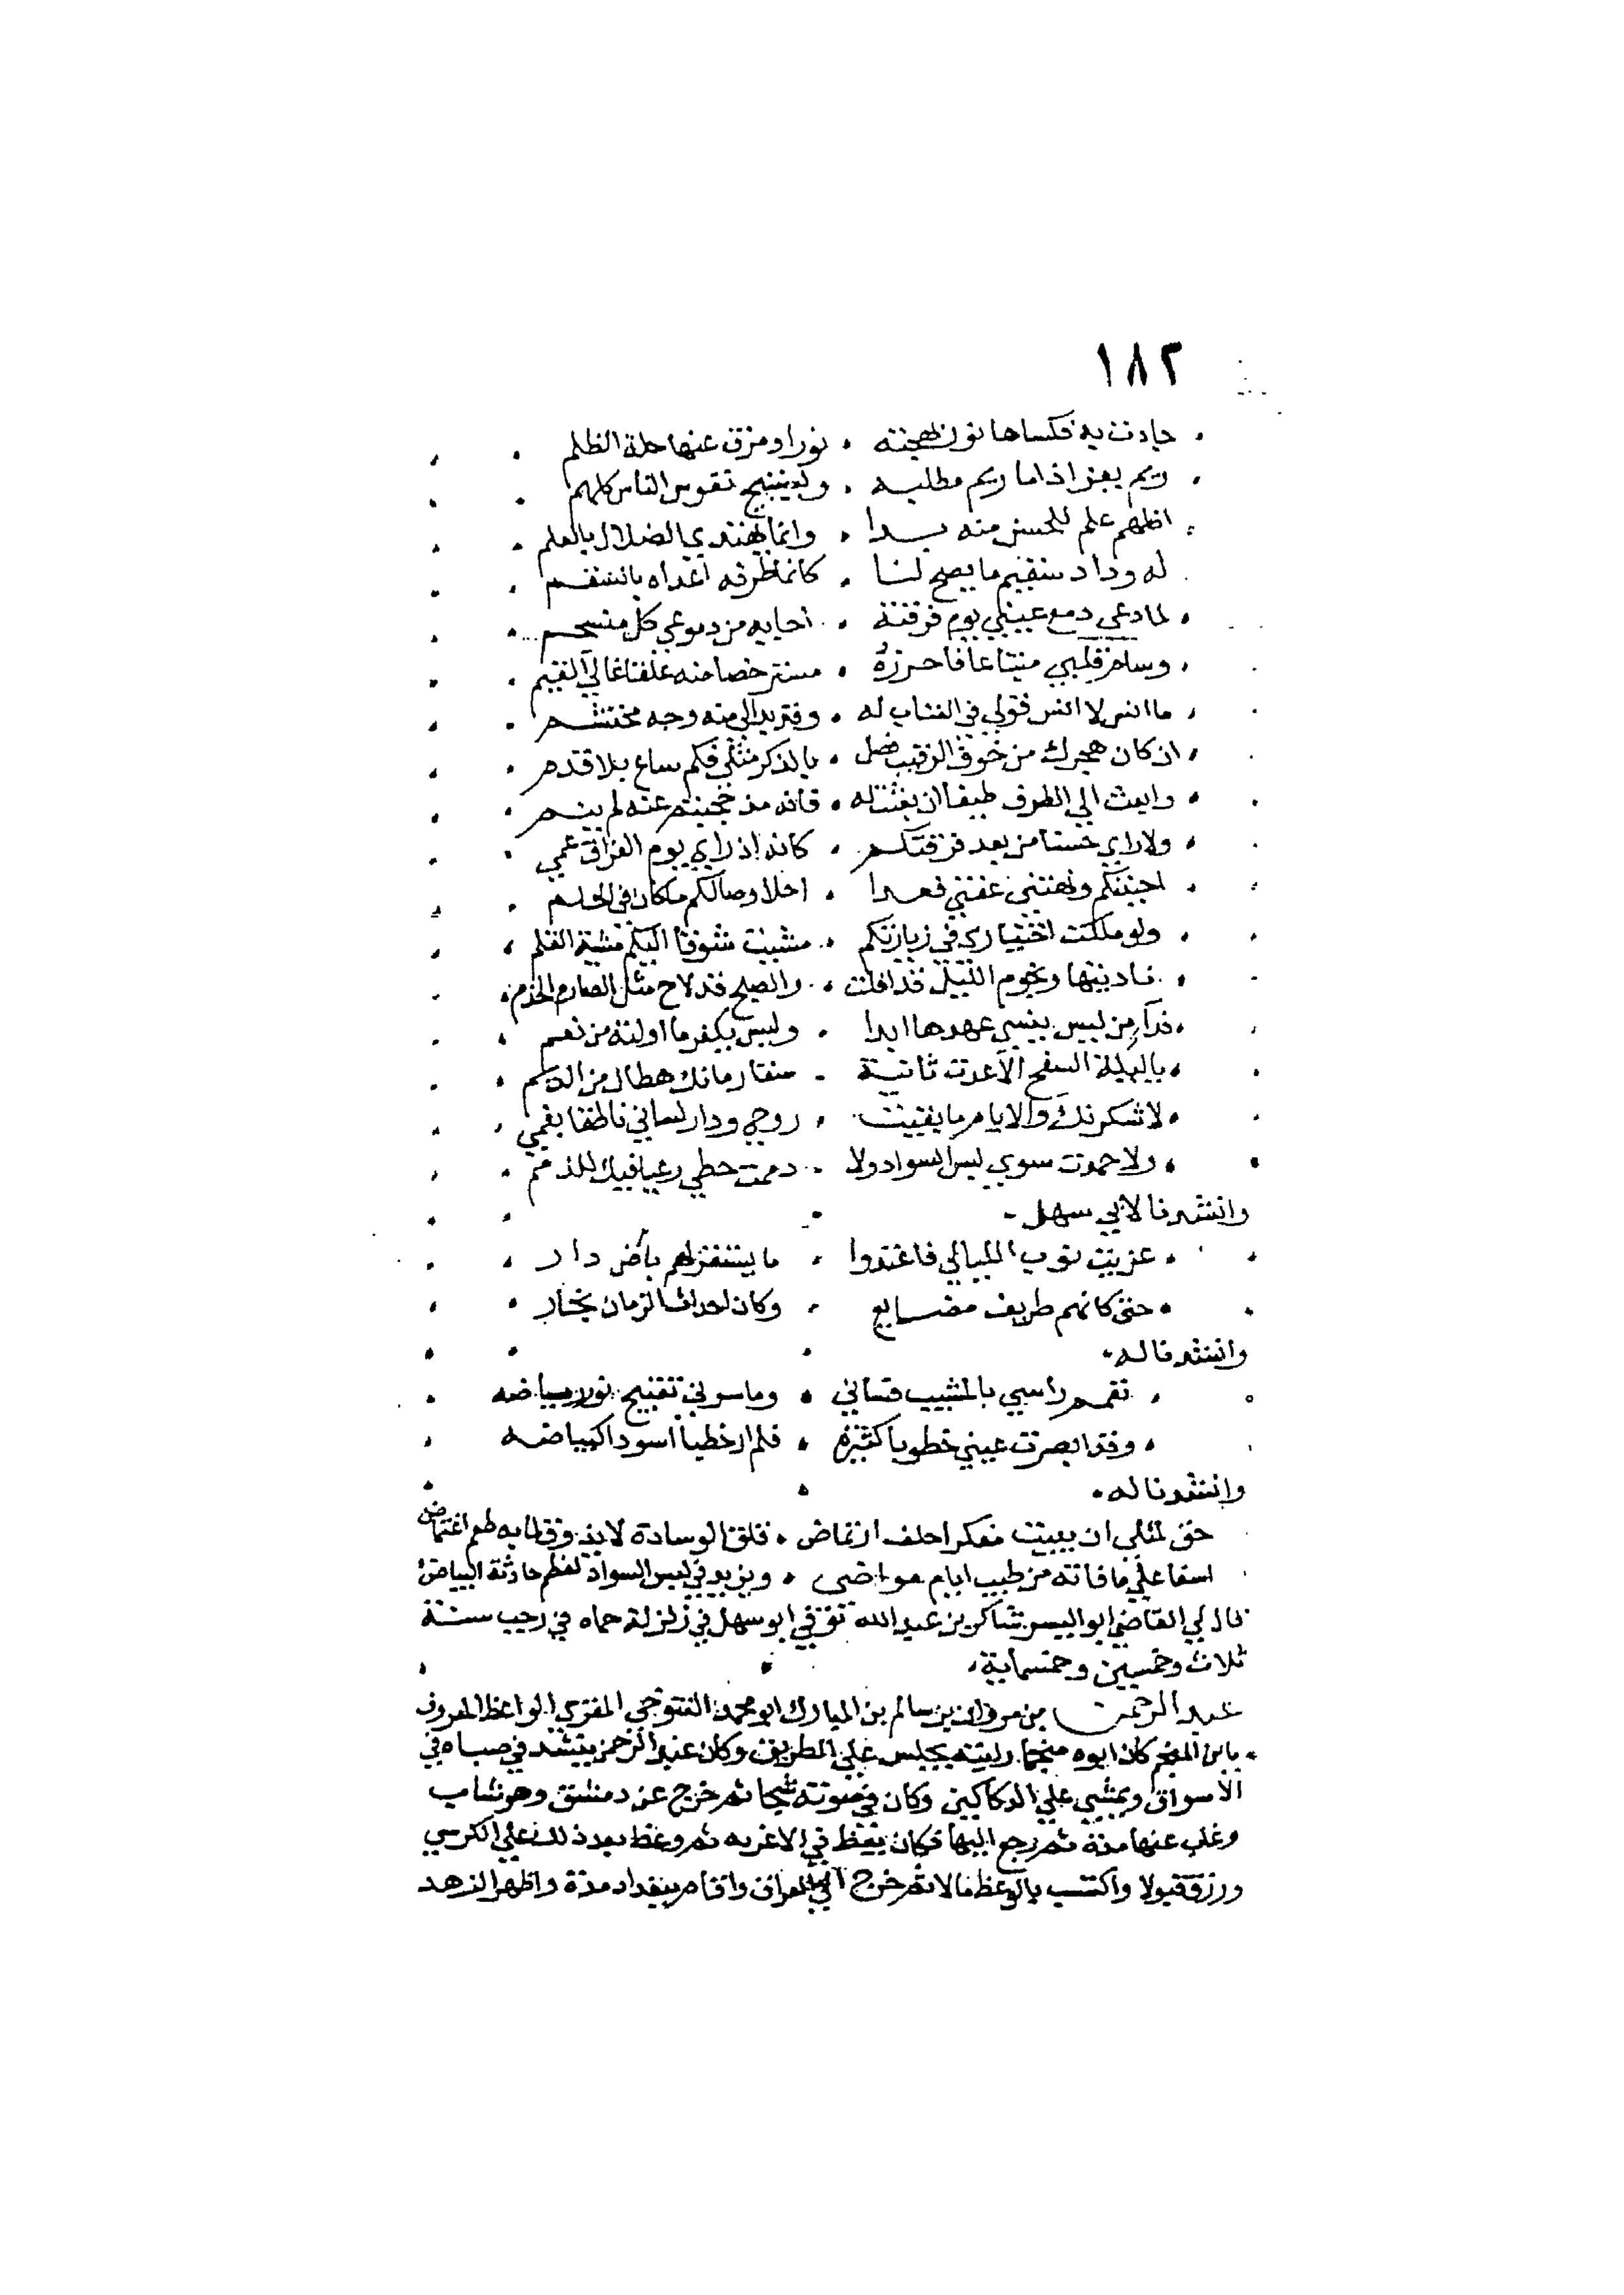 ١٨٢
جادت به فكساها نور بهجته . نورا ومزق عنها حلة الظلم
ريم يعز اذا ما ريم مطلبه . نفوس الناس كلهم
اظلهم علم للحسن منه بدا . وانما يهتدي الضلال بالعلم
له وداد سقيم ما يصح لنا . كانما طرفه اعداه بالسقم
لما دعى دمع عيني يوم فرقته . اجابه من دموعي كل منسجم
وسام قلبي
ما انس لا انس قولي في العتاب له . وجه محتشم
ان كان هجرك من خوف الرقيب فصل . بالذكر مثلي فكم ساع بلا قدم
وابعث الي الطرف طيفا ان بعثت له . فانه مذ حجبتم عنه لم ينم
ولا راي حسنا من بعد فرقتكم . كانه اذ راي يوم الفراق عمي
اجبتكم ونهتني عفتي فغدا . احلا وصالكم ما كان في الحلم
ولو ملكت اختياري في زيارتكم . مشيت شوقا اليكم مشية القلم
ناديتها ونجوم الليل قد افلت . والصبح قد لاح مثل الصارم الخذم
ندآ من ليس ينسي عهدها ابدا . وليس يكفر ما اولته من نعم
يا ليلة السفح الا عدت ثانية . سقا زمانك هطال من الديم
لاشكرنك والايام ما بقيت . روحي ودار لساني ناطقا بفمي
ولا حمدت سوي لبس السواد ولا . ذممت حظي رعيا فيك للذمم
وانشدنا لابي سهل .
عزيت نوب الليالي فاغتدوا . ما يستقر لهم بارض دار
حتى كانهم طريف ضايع . وكان احداث الزمان تجار
وانشدنا له .
تعمم راسي بالمشيب فساني . وما سرني تفتيح نور بياضه
وقد ابصرت عيني خطوبا كثيرة . فلم ار خطبا اسودا كبياضه
وانشدنا له .
حق لمثلي ان يبيت مفكرا حلف ارتماض . قلق الوسادة لا يذوق لما به طعم اغتماض
اسفا علي ما فاته من طيب ايام مواضي . ويزيد في لبس السواد لعظم حادثة البياض
قال لي القاضي ابو اليسر شاكر بن عبد الله توفي ابو سهل في زلزلة حماه في رجب سنة
ثلاث وخمسين وخمسماية .
عبد الرحمن بن مروان بن سالم بن المبارك ابو محمد التنوخي المقري الواعظ المعروف
بابن المنجم كان ابوه منجما رايته يجلس علي الطريق وكان عبد الرحمن ينشد في صباه في
الاسواق ويمشي علي الدكاكين وكان في صوته شجا ثم خرج عن دمشق وهو شاب
وغاب عنها مدة ثم رجع اليها فكان يعظ في الاعزيه ثم وعظ بعد ذلك علي الكرسي
ورزق قبولا واكتسب بالوعظ مالا ثم خرج الي العراق واقام ببغداد مدة واظهر الزهد